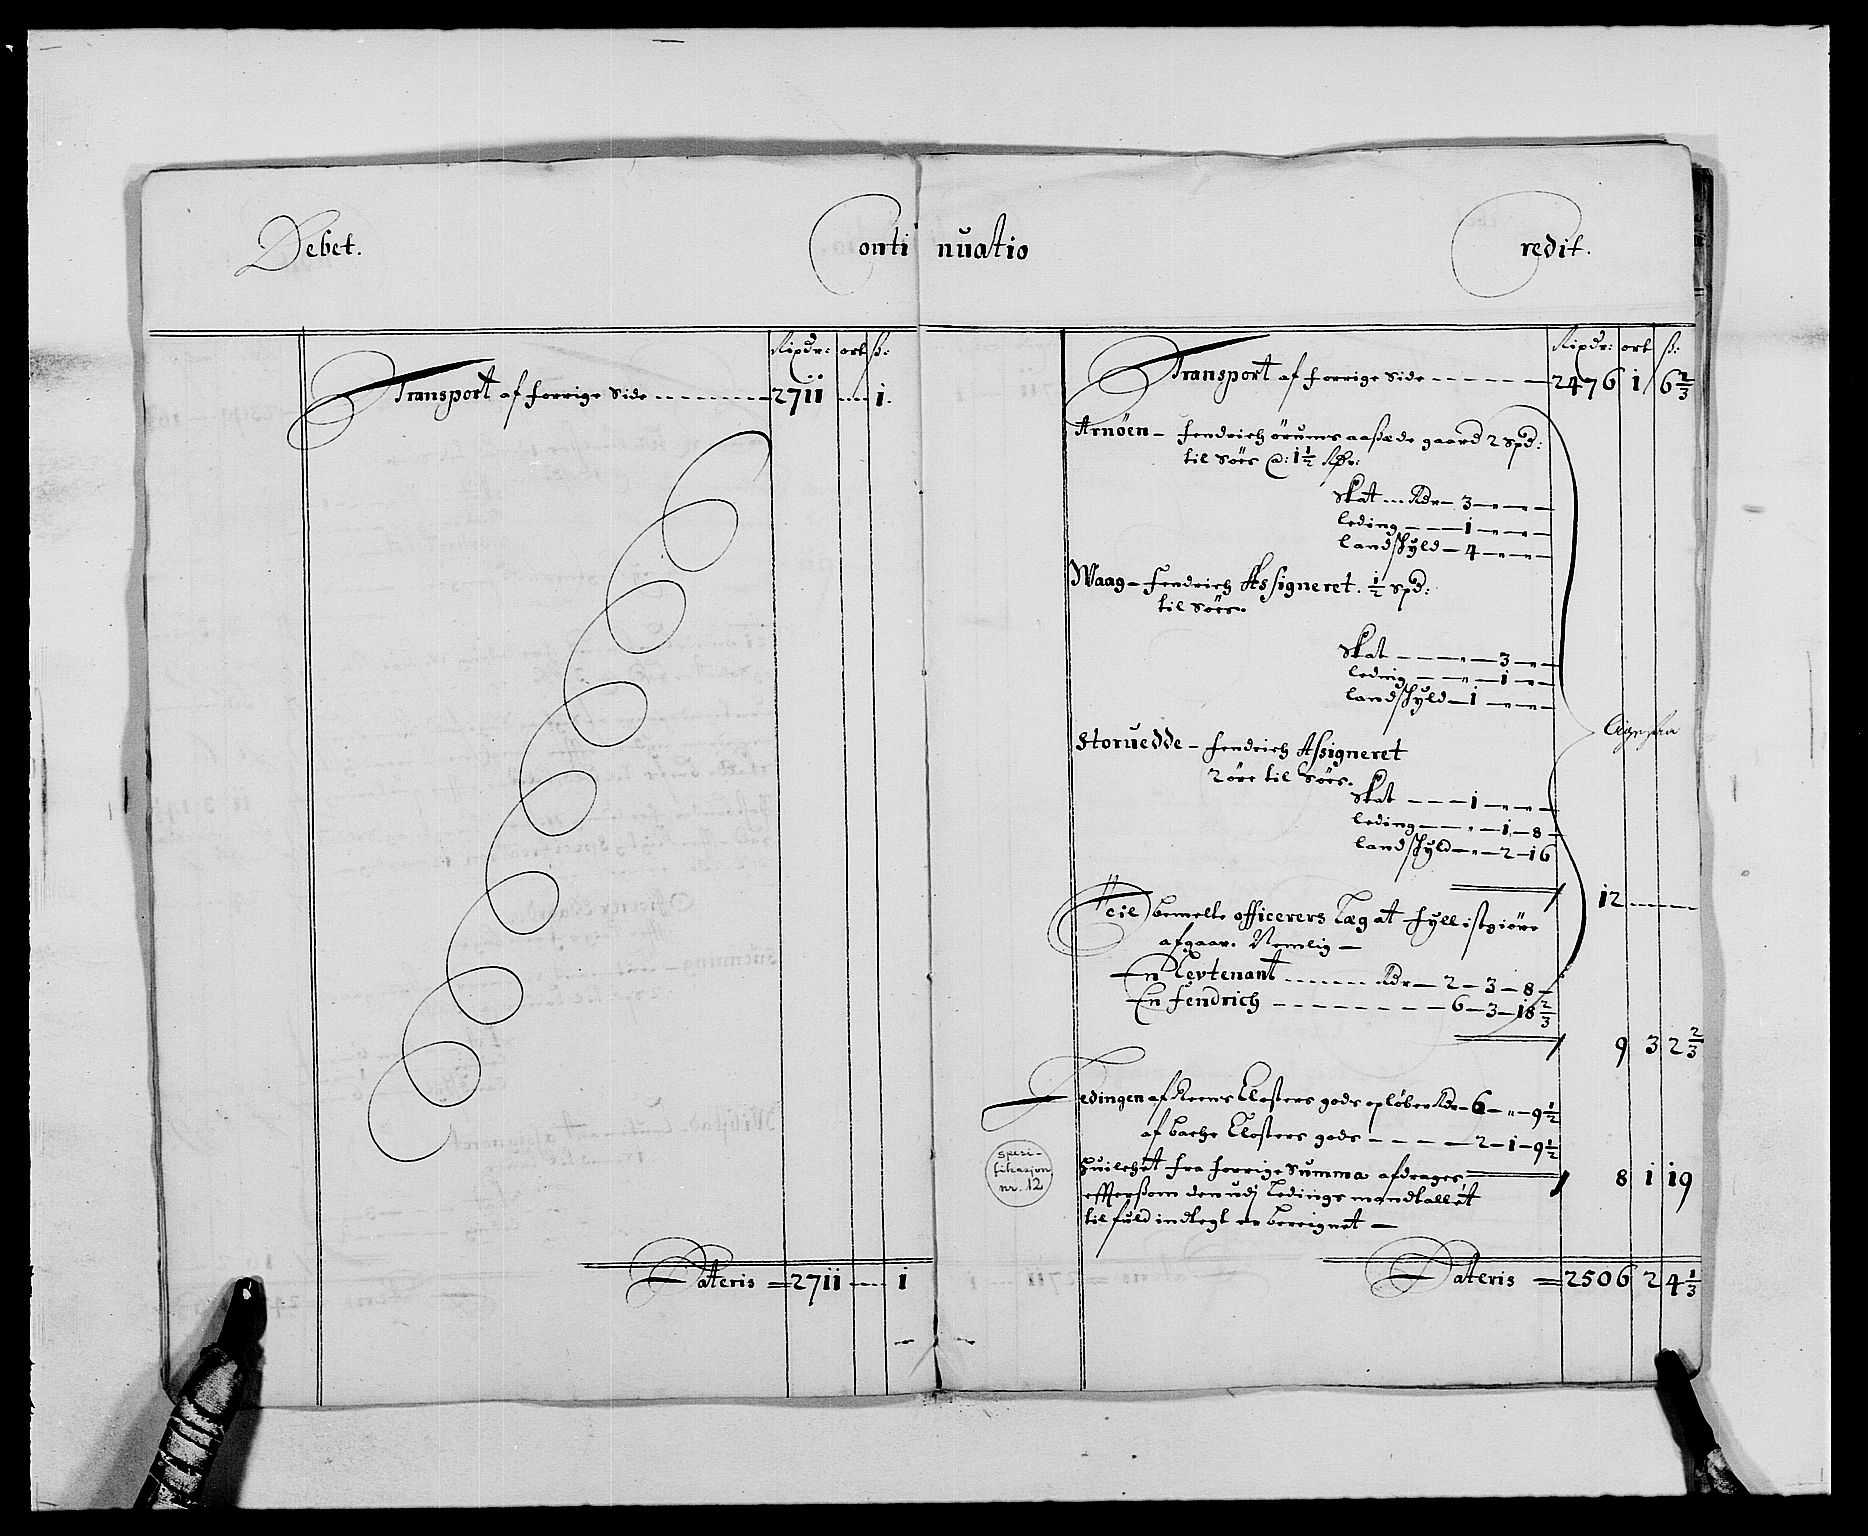 Debet. Continuatio Credit.
Rixdr: ort ß:
Transport af forrige Side - - - - 2711 - - - 1.
Lateris = 2711 - - - 1
Rixdr: ort ß:
Transport af forrige Side - - - - 2476 1 6 2/3
Arnöen - fendrich örums aaßæde gaard 2 Spd:
til Söes @: 1 1/2 Rdr:
Skat - - - Rdr - 3 - „ - „ -
leding - - - 1 - „ - „ -
landskyld - 4 - „ - „ -
Waag - fendrich Assigneret. 1/2 Spd:
til Söes.
Skat - - - „ - 3 - „ -
leding - - „ - 1 - „ -
landskyld - 1 - „ - „ -
Storuedde - fendrich Assigneret
2 öre til Söes.
Skat - - - 1 - „ - „ -
leding - - „ - 1 - 8 -
landskyld - „ - 2 - 16
12 - - - -
Til bemelte officerers Læg at fyllistgiöre
afgaar. Nemlig -
En Leutenant - - - - Rdr - 2 - 3 - 8 -
En fendrich - - - - - - 6 - 3 - 18 2/3
9 3 2 2/3
Ledingen af Reens Closters gods opløber Rdr - 6 - „ - 9 1/2
af bache Closters gods - - - - 2 - 1 - 9 1/2
spesi-
fikasjon
nr. 12
huilchet fra forrige Summa afdrages, 8 1 19
effterßom den udj Ledings mandtallet
til fuld indtegt er bereignet -
Lateris = 2506 2 4 1/3